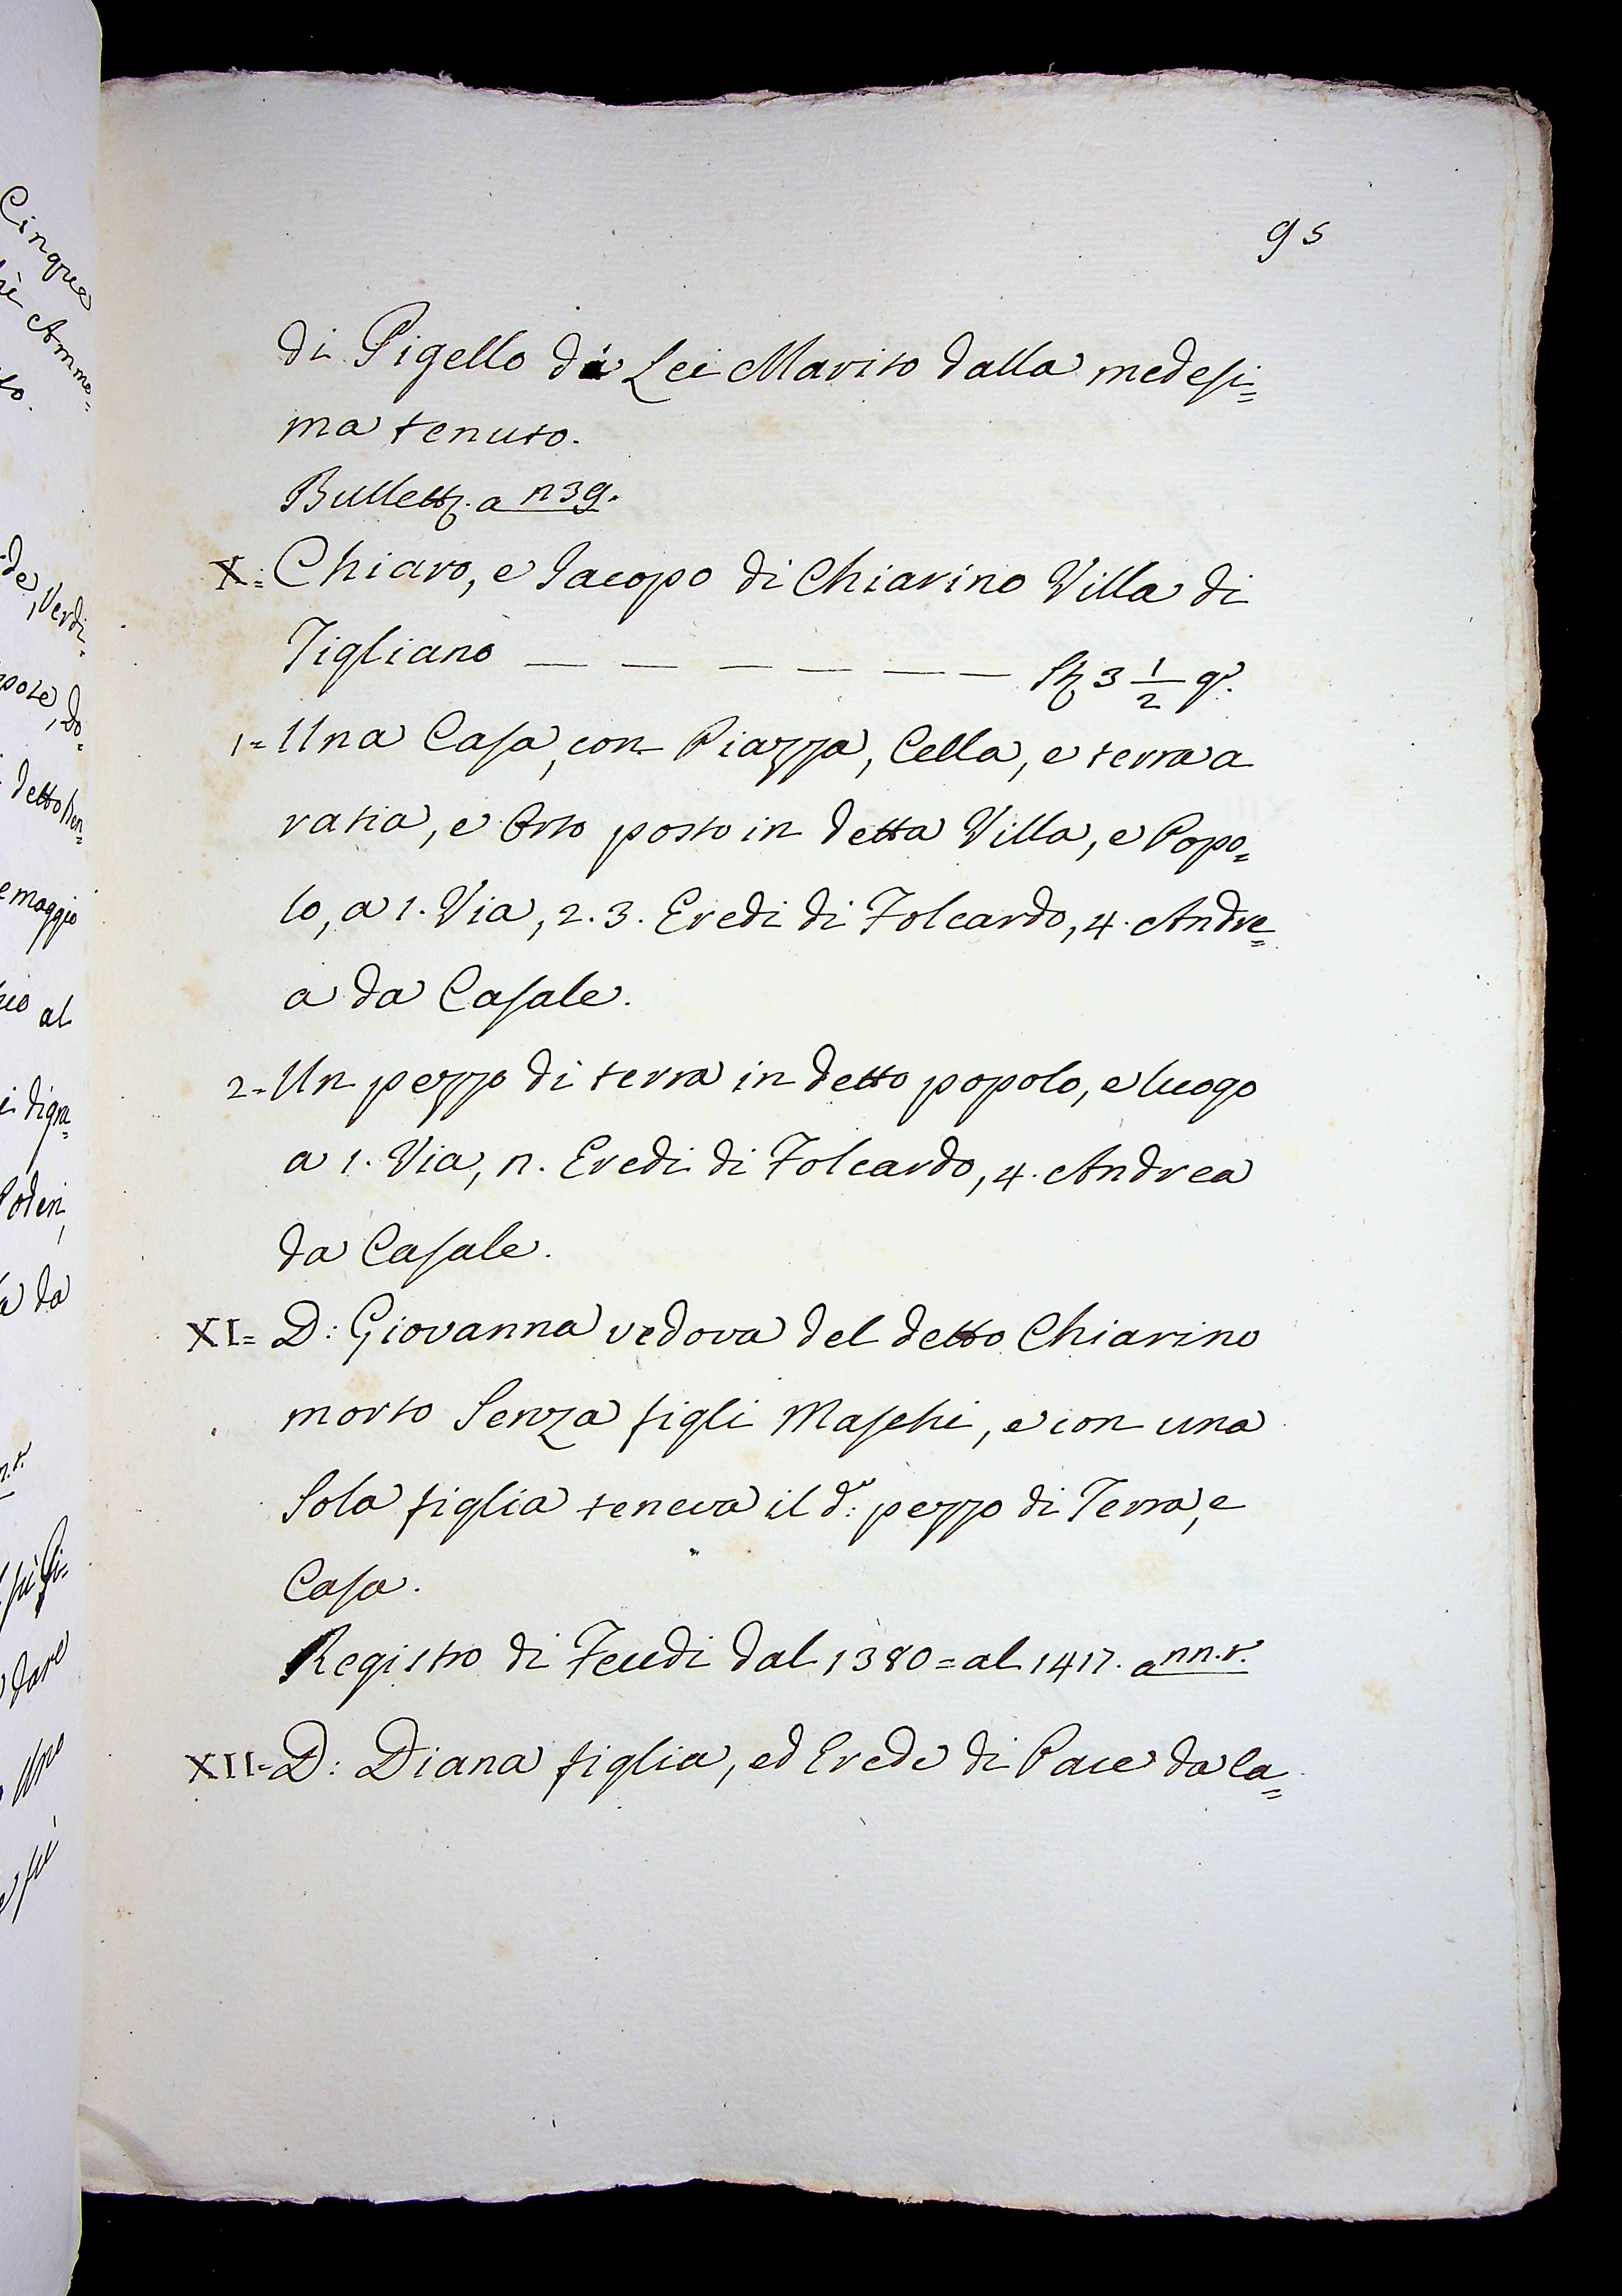 95
di Pigello di Lei Marito dalla medesi=
ma tenuto.
Bullett. a n 39.
X: Chiaro, e Iacopo di Chiarino Villa di
Tigliano — — — — — — 3 1/2
1= Una Casa, con Piazza, Cella, e terra a
ratia, e Orto posto in detta Villa, e Popo=
lo, a 1. Via, 2. 3. Eredi di Folcardo, 4. Andre=
a da Casale.
2= Un pezzo di terra in detto popolo, e luogo
a 1. Via, n. Eredi di Folcardo, 4. Andrea
da Casale.
XI= D: Giovanna vedova del detto Chiarino
morto Senza figli Maschi, e con una
Sola figlia teneva il d: pezzo di Terra, e
Casa.
Registro di Feudi dal 1380= al 1417. a nn.r.
XII= D: Diana figlia, ed Erede di Pace da Ca=
Cinque
Amme=
Verdi=
detto
maggio
al
Poderi,
da
dare